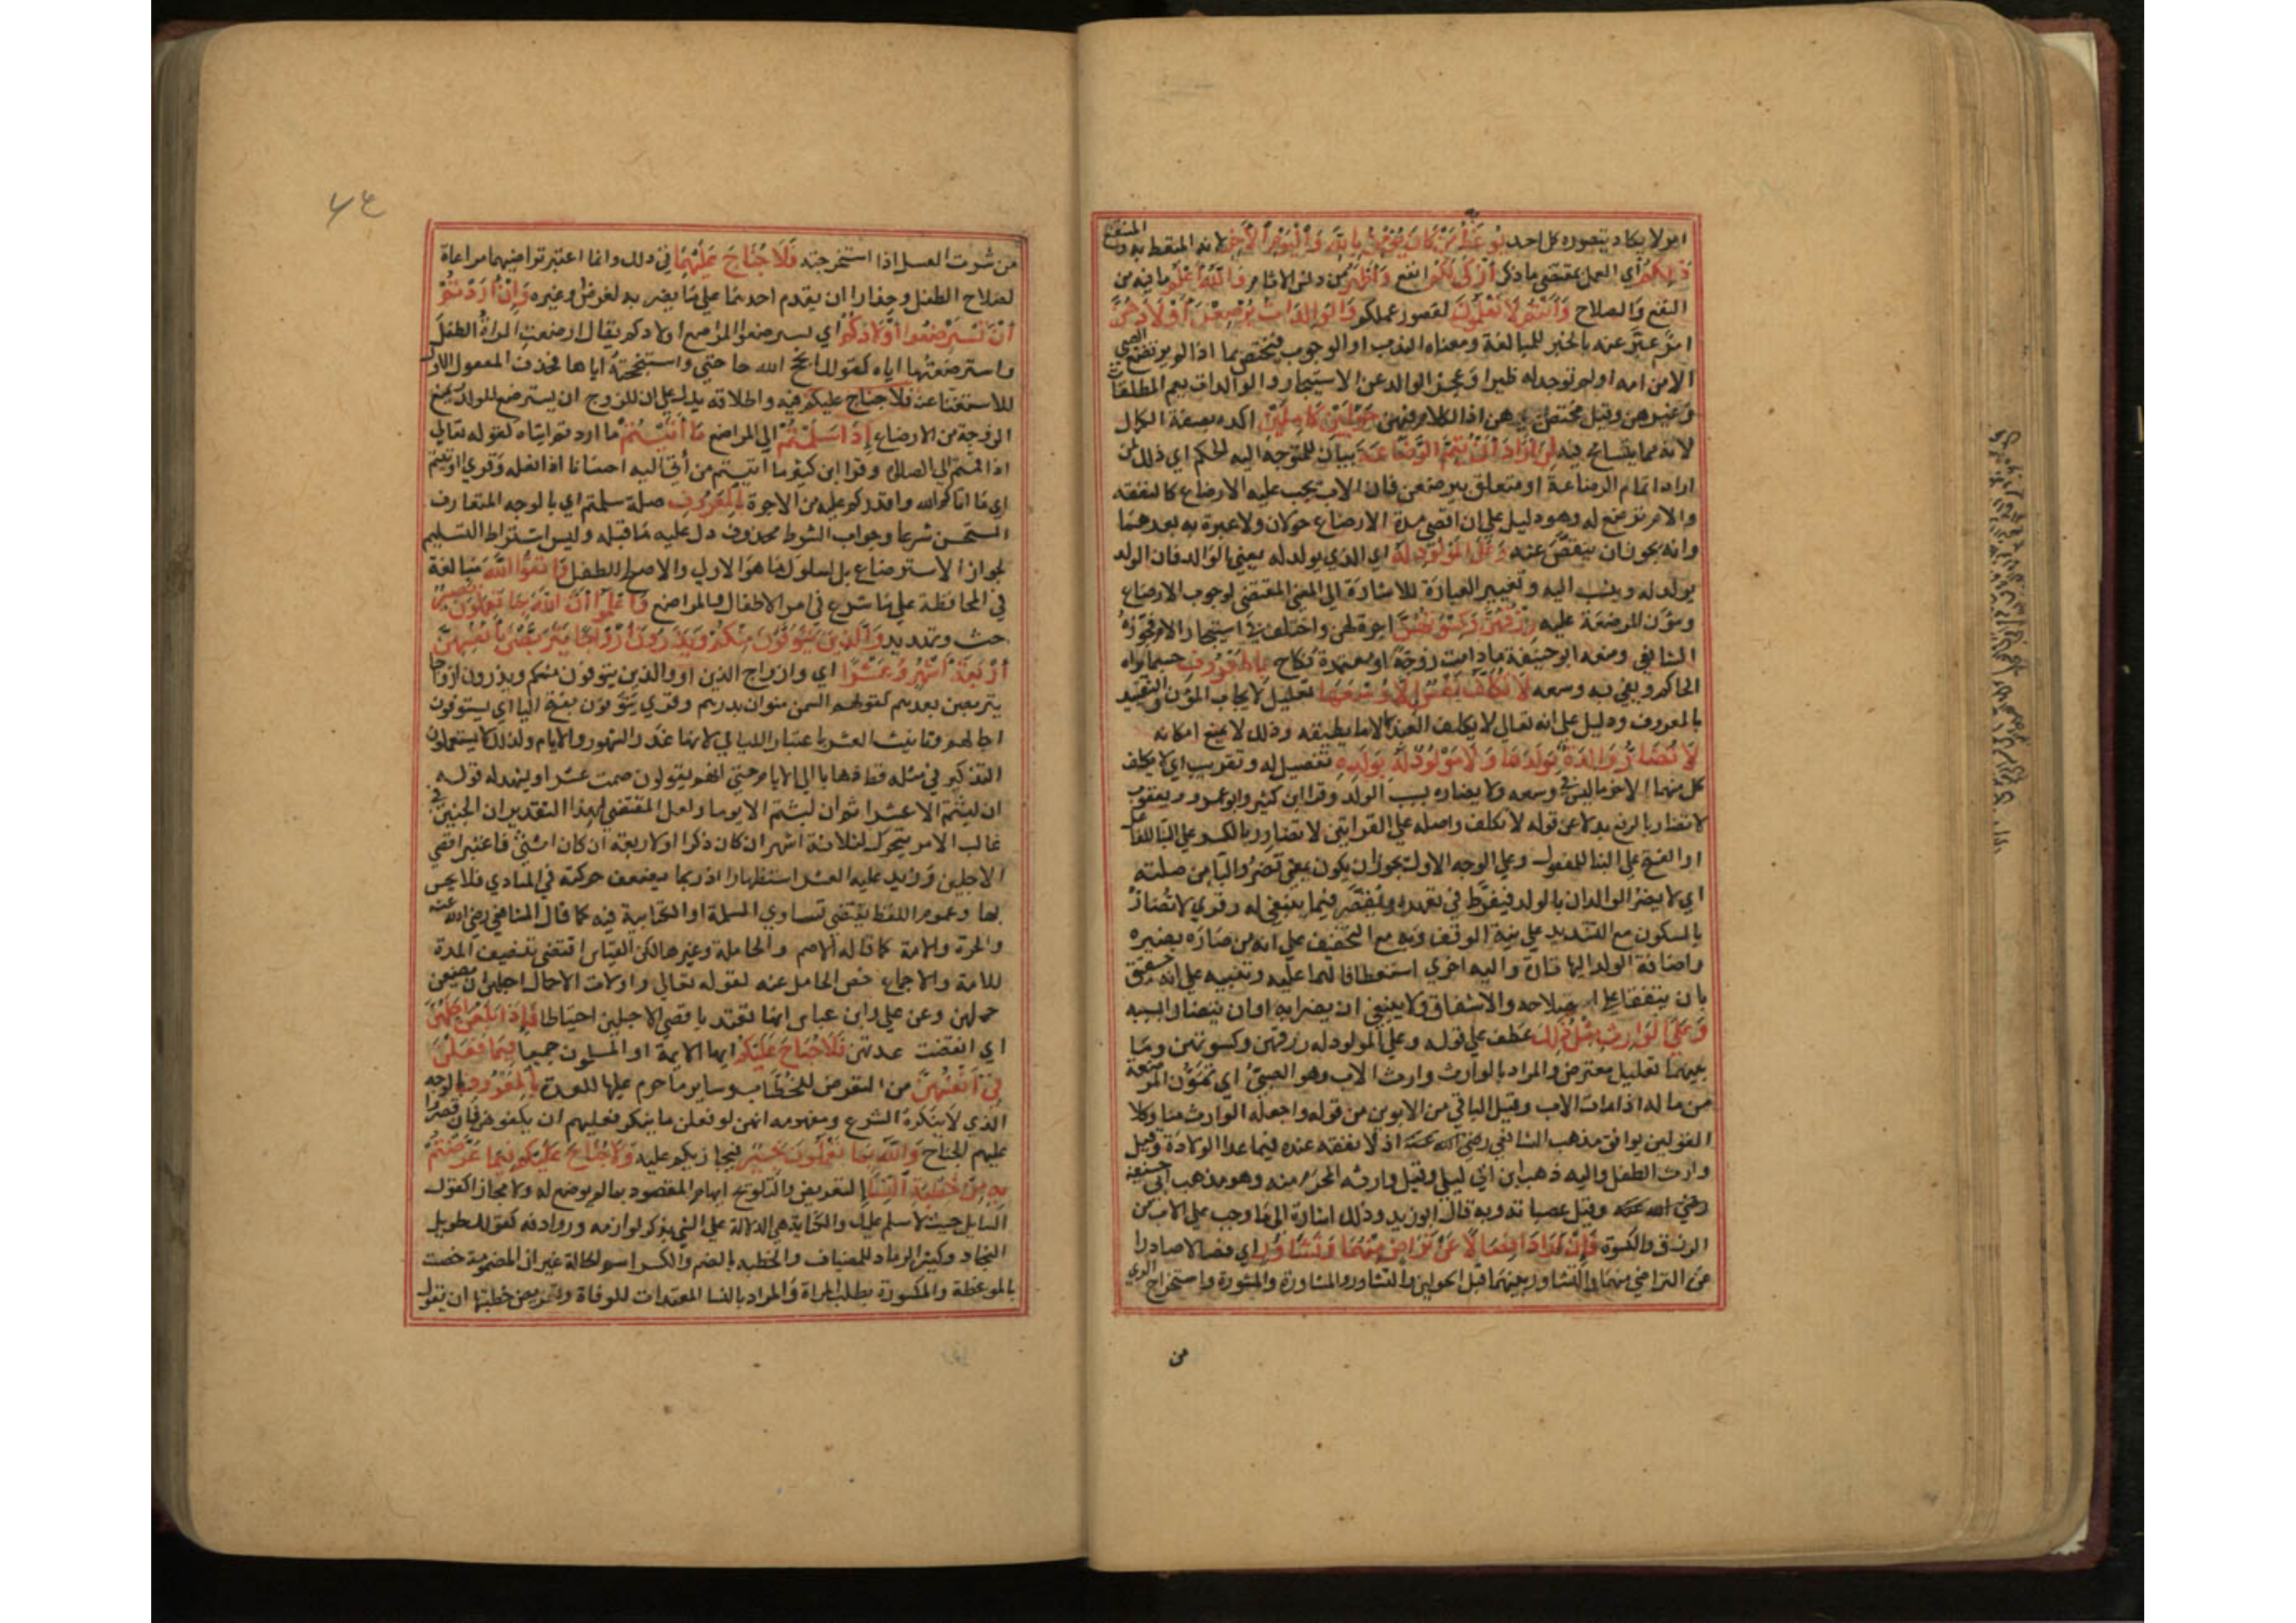 امر لا يكاد يتصوره كل احد يُوعَظُ بِهِ مَنْ كَانَ يُؤْمِنُ بِاللَّهِ وَالْيَوْمِ الْآخِرِ لانه المتعظ به والمنتفع
ذَلِكُمْ أي العمل بمقتضى ما ذكر أَزْكَى لَكُمْ انفع وَأَطْهَرُ من دنس الاثام وَاللَّهُ أَعْلَمُ ما فيه من
النفع والصلاح وَأَنْتُمْ لَا تَعْلَمُونَ لقصور علمكم وَالْوَالِدَاتُ يُرْضِعْنَ أَوْلَادَهُنَّ
امر عبّر عنه بالخبر للمبالغة ومعناه الندب او الوجوب فيختص بما اذا لم يرتضع الصبي
الا من امه او لم توجد له ظير او عجز الوالد عن الاستيجار والوالدات يعم المطلقات
وغيرهن وقيل مختص بهن اذ الكلام فيهن حَوْلَيْنِ كَامِلَيْنِ اكده بصفة الكمال
لانه مما يتسامح فيه لِمَنْ أَرَادَ أَنْ يُتِمَّ الرَّضَاعَةَ بيان للمتوجه اليه الحكم اي ذلك لمن
اراد اتمام الرضاعة او متعلق بيرضعن فان الاب يجب عليه الارضاع كالنفقه
والام ترضع له وهو دليل على ان اقصى مدة الارضاع حولان ولا عبرة به بعدهما
وانه يجوز ان ينقص عنه وَعَلَى الْمَوْلُودِ لَهُ اي الذي يولد له يعني الوالد فان الولد
يولد له وينسب اليه وتغيير العبارة للاشارة الى المعنى المقتضى لوجوب الارضاع
ومؤن المرضعة عليه رِزْقُهُنَّ وَكِسْوَتُهُنَّ اجرة لهن واختلف في استيجار الام فجوزه
الشافعي ومنعه ابو حنيفة ما دامت زوجة او معتدة نكاح بِالْمَعْرُوفِ حسبما يراه
الحاكم ويفي به وسعه لَا تُكَلَّفُ نَفْسٌ إِلَّا وُسْعَهَا تعليل لايجاب المؤن والتقييد
بالمعروف ودليل على انه تعالى لا يكلف العبد الا ما يطيقه وذلك لا يمنع امكانه
لَا تُضَارَّ وَالِدَةٌ بِوَلَدِهَا وَلَا مَوْلُودٌ لَهُ بِوَلَدِهِ تفصيل له وتقريب اي لا يكلف
كل منهما الاخر ما ليس في وسعه ولا يضاره بسبب الولد وقرا ابن كثير وابو عمرو ويعقوب
لا تضار بالرفع بدلا عن قوله لا تكلف واصله على القراتين لا تضارر بالكسر على البنا للفاعل
او الفتح على البنا للمفعول وعلى الوجه الاول يجوز ان يكون بمعنى تضر والبا من صلته
اي لا يضر الوالدان بالولد فيفرط في تعهده ويقصر فيما ينبغي له وقري لا تضار
بالسكون مع التشديد على نية الوقف وبه مع التخفيف على انه من ضاره يضيره
واضافة الولد اليها تارة واليه اخرى استعطافا لهما عليه وتنبيه على انه حقيق
بان يتفقا على استصلاحه والاشفاق ولا ينبغي ان يضرا به او ان يتضارا بسببه
وَعَلَى الْوَارِثِ مِثْلُ ذَلِكَ عطف على قوله وعلى المولود له رزقهن وكسوتهن وما
بينهما تعليل معترض والمراد بالوارث وارث الاب وهو الصبي اي تمون المرضعة
من ماله اذا مات الاب وقيل الباقي من الابوين من قوله واجعله الوارث منا وكلا
القولين يوافق مذهب الشافعي رضي الله عنه اذ لا نفقه عنده فيما عدا الولادة وقيل
وارث الطفل واليه ذهب ابن ابي ليلى وقيل وارثه المحرم منه وهو مذهب ابي حنيفة
رضي الله عنه وقيل عصباته وبه قال ابو زيد وذلك اشارة الى ما وجب على الاب من
الرزق والكسوة فَإِنْ أَرَادَا فِصَالًا عَنْ تَرَاضٍ مِنْهُمَا وَتَشَاوُرٍ اي فصالا صادرا
عن التراضي منهما والتشاور بينهما قبل الحولين والتشاور والمشاورة والمشورة واستخراج الراي
من
من شرت العسل اذا استخرجته فَلَا جُنَاحَ عَلَيْهِمَا في ذلك وانما اعتبر تراضيهما مراعاة
لصلاح الطفل وحذارا ان يقدم احدهما على ما يضر به لغرض او غيره وَإِنْ أَرَدْتُمْ
أَنْ تَسْتَرْضِعُوا أَوْلَادَكُمْ اي تسترضعوا المراضع اولادكم يقال ارضعت المراة الطفل
واسترضعتها اياه كقولك انجح الله حاجتي واستنجحته اياها فحذف المفعول الاول
للاستغنا عنه فَلَا جناح عليكم فيه واطلاقه يدل على ان للزوج ان يسترضع للولد ويمنع
الزوجة من الارضاع إِذَا سَلَّمْتُمْ الى المراضع مَا آتَيْتُمْ ما اردتم ايتاه كقوله تعالى
اذا قمتم الى الصلاة وقرا ابن كثير ما اتيتم من اتى اليه احسانا اذا فعله وقري اوتيتم
اي ما اتاكم الله واقدركم عليه من الاجرة بِالْمَعْرُوفِ صلة سلمتم اي بالوجه المتعارف
المستحسن شرعا وجواب الشرط محذوف دل عليه ما قبله وليس اشتراط التسليم
لجواز الاسترضاع بل لسلوك ما هو الاولى والاصلح للطفل وَاتَّقُوا اللَّهَ مبالغة
في المحافظة على ما شرع في امر الاطفال والمراضع وَاعْلَمُوا أَنَّ اللَّهَ بِمَا تَعْمَلُونَ بَصِيرٌ
حث وتهديد وَالَّذِينَ يُتَوَفَّوْنَ مِنْكُمْ وَيَذَرُونَ أَزْوَاجًا يَتَرَبَّصْنَ بِأَنْفُسِهِنَّ
أَرْبَعَةَ أَشْهُرٍ وَعَشْرًا اي وازواج الذين او والذين يتوفون منكم ويذرون ازواجا
يتربصن بعدهم كقولهم السمن منوان بدرهم وقري يتوفون بفتح اليا اي يستوفون
اجالهم وتانيث العشر باعتبار الليالي لانها غرر الشهور والايام ولذلك لا يستعملون
التذكير في مثله قط ذهابا الى الايام حتى انهم يقولون صمت عشرا ويشهد له قوله
ان لبثتم الا عشرا ثم ان لبثتم الا يوما ولعل المقتضي لهذا التقدير ان الجنين في
غالب الامر يتحرك لثلاثة اشهر ان كان ذكرا او لاربعة ان كان انثى فاعتبر اقصى
الاجلين وزيد عليه العشر استظهارا اذ ربما يضعف حركته في المبادي فلا يحس
بها وعموم اللفظ يقتضي تساوي المسلمة او الكتابية فيه كما قال الشافعي رضي الله عنه
والحرة والامة كما قاله الاصم والحاملة وغيرها لكن القياس اقتضى تنصيف المدة
للامة والاجماع خص الحامل عنه لقوله تعالى واولات الاحمال اجلهن ان يضعن
حملهن وعن علي وابن عباس انها تعتد باقصى الاجلين احتياطا فَإِذَا بَلَغْنَ أَجَلَهُنَّ
اي انقضت عدتهن فَلَا جُنَاحَ عَلَيْكُمْ ايها الايمة او المسلمون جميعا فِيمَا فَعَلْنَ
فِي أَنْفُسِهِنَّ من التعرض للخطاب وساير ما حرم عليها للعدة بِالْمَعْرُوفِ بالوجه
الذي لا ينكره الشرع ومفهومه انهن لو فعلن ما ينكر فعليهم ان يكفوهن فان قصروا
عليهم الجناح وَاللَّهُ بِمَا تَعْمَلُونَ خَبِيرٌ فيجازيكم عليه وَلَا جُنَاحَ عَلَيْكُمْ فِيمَا عَرَّضْتُمْ
بِهِ مِنْ خِطْبَةِ النِّسَاءِ التعريض والتلويح ايهام المقصود بما لم يوضع له ولا مجازا كقول
السايل جيت لاسلم عليك والكناية هي الدلالة على الشي بذكر لوازمه وروادفه كقولك طويل
النجاد وكثير الرماد للمضياف والخطبة بالضم والكسر اسم الحالة غير ان المضمومة خصت
بالموعظة والمكسورة بطلب المراة والمراد بالنسا المعتدات للوفاة وتعريض خطبتها ان يقول